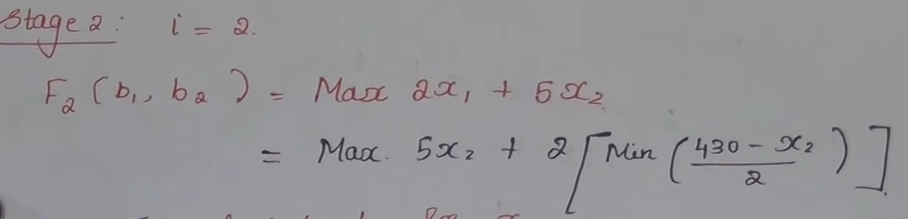 Stage 2: i = 2.
F₂ (b₁, b₂) = Max 2x₁ + 5x₂
= Max. 5x₂ + 2 [Min ((430 - x₂)/2)]